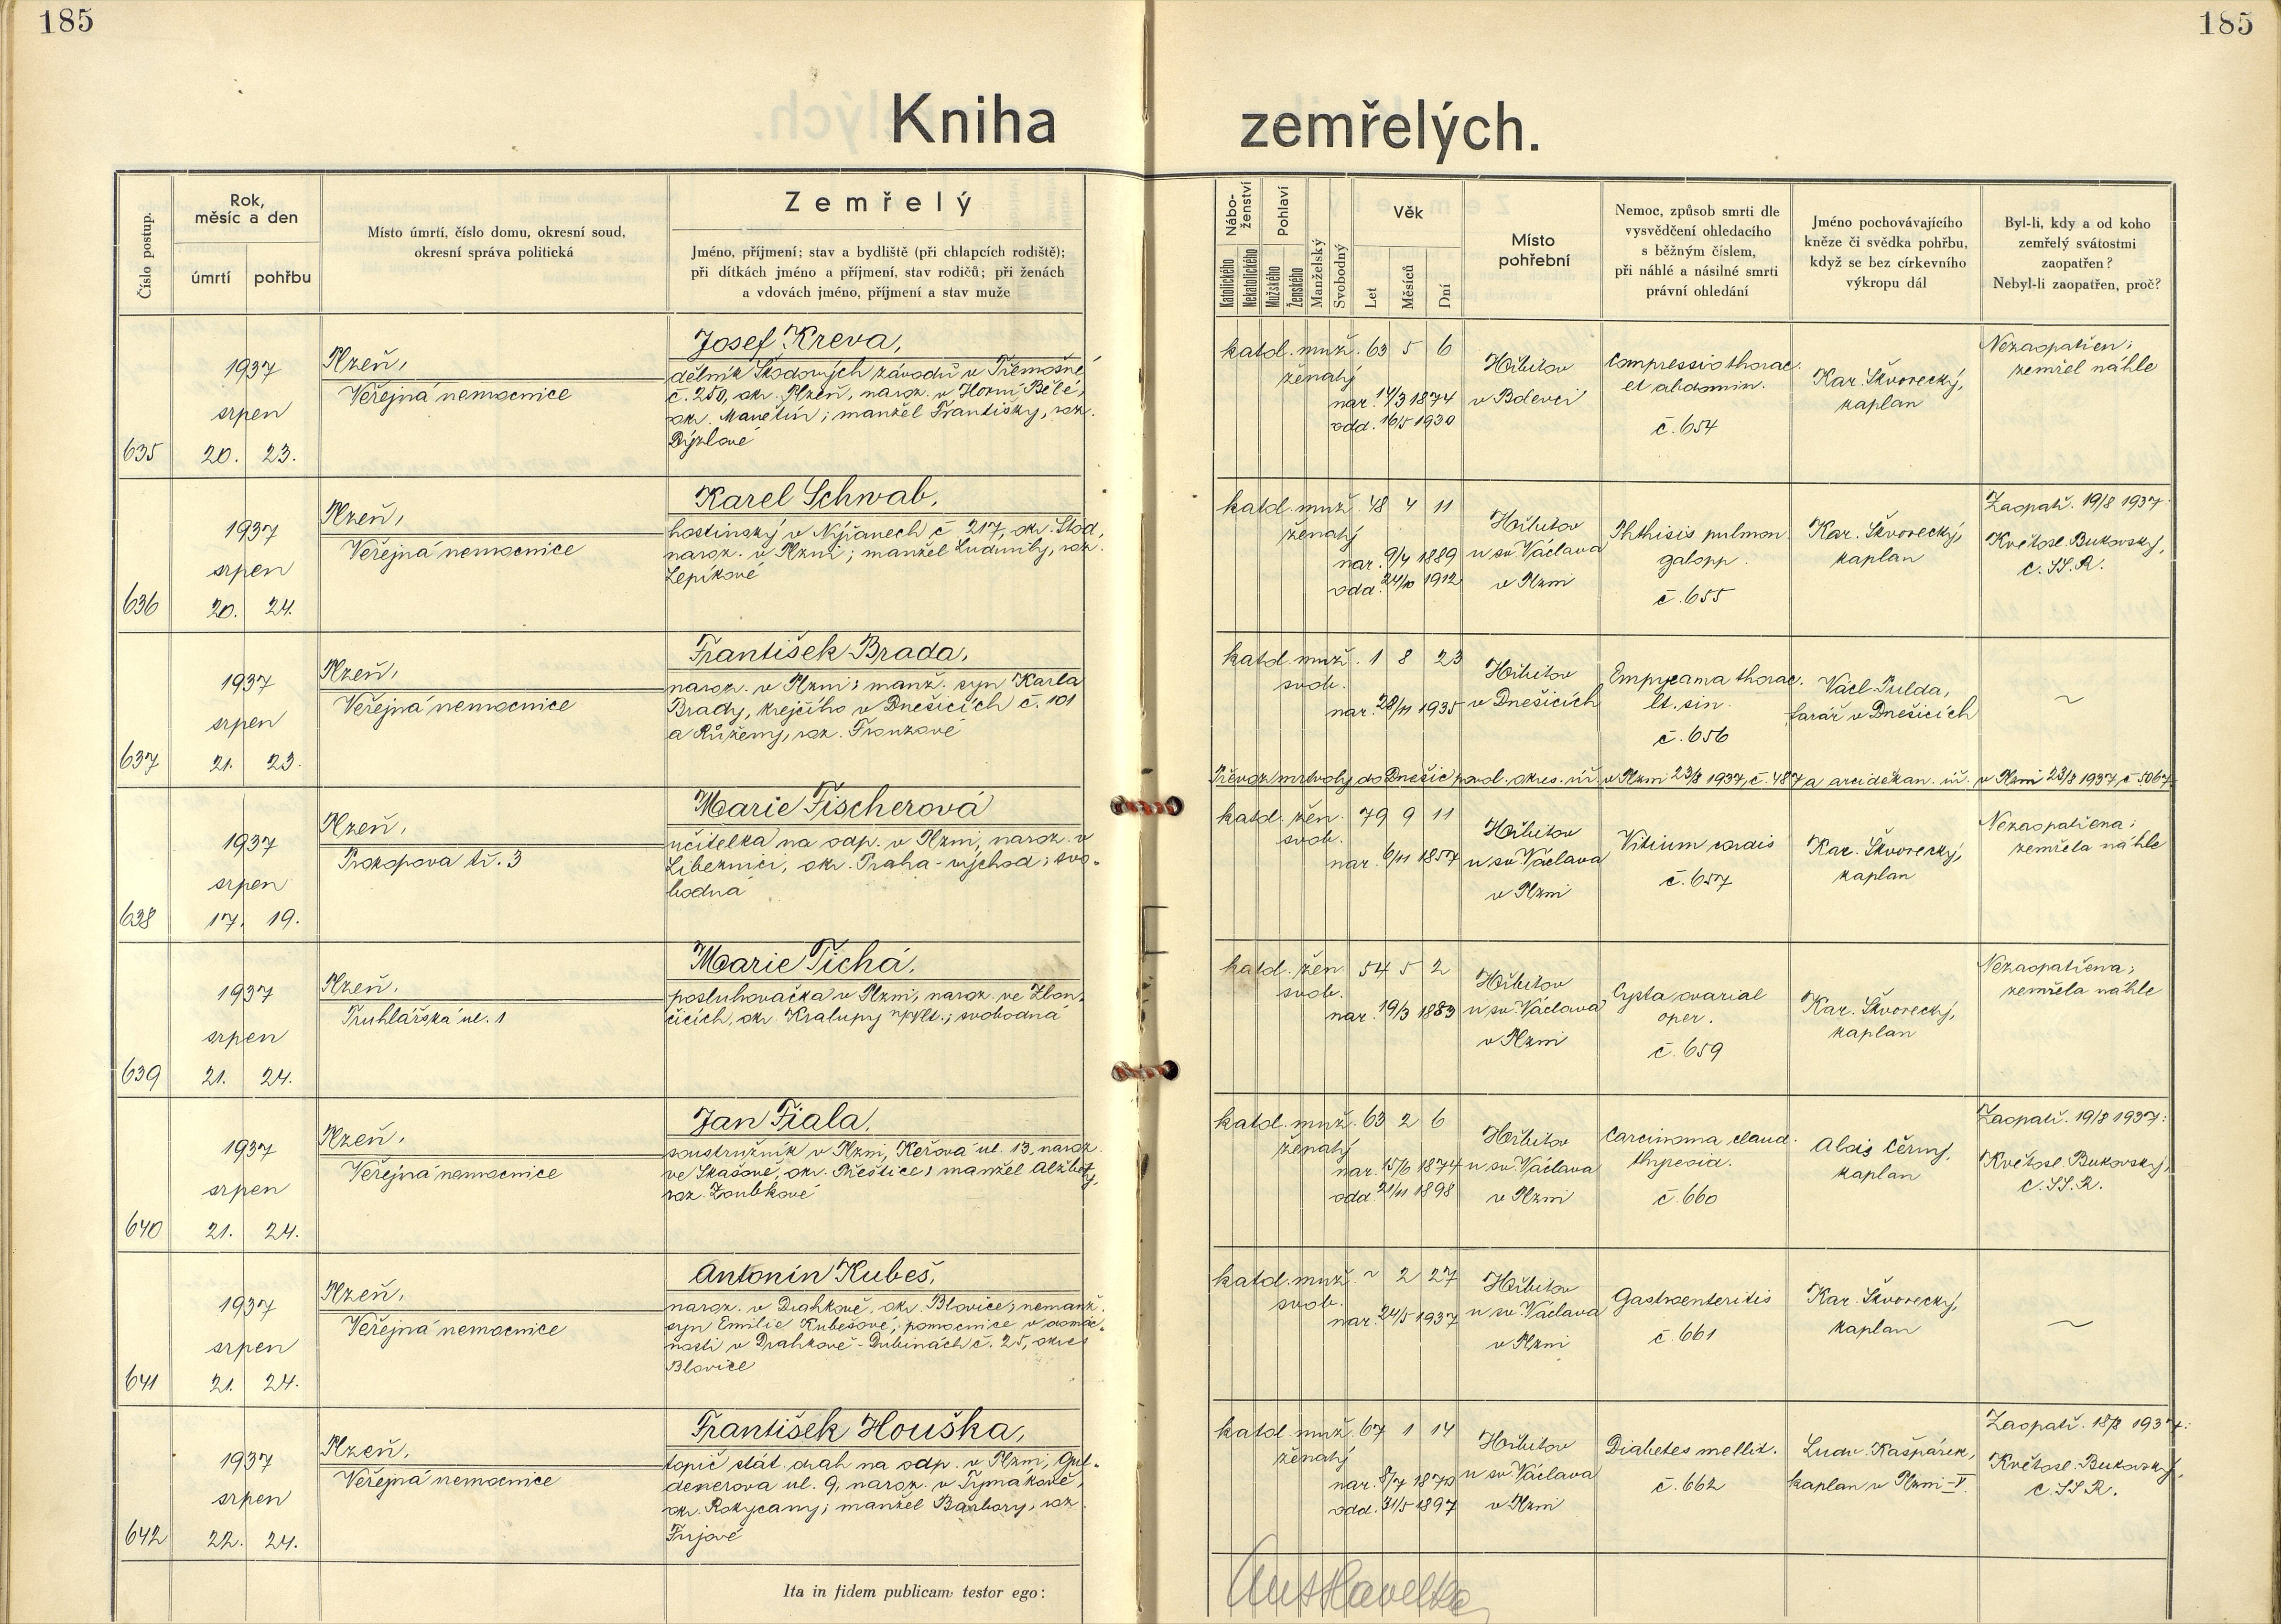 185
185
Kniha zemřelých.
Číslo postup.
Rok,
měsíc a den
úmrtí
pohřbu
Místo úmrtí, číslo domu, okresní soud,
okresní správa politická
Zemřelý
Jméno, příjmení; stav a bydliště (při chlapcích rodiště);
při dítkách jméno a příjmení, stav rodičů; při ženách
a vdovách jméno, příjmení a stav muže
Nábo-
ženství
Katolického
Nekatolického
Pohlaví
Mužského
Ženského
Manželský
Svobodný
Věk
Let
Měsíců
Dní
Místo
pohřební
Nemoc, způsob smrti dle
vysvědčení ohledacího
s běžným číslem,
při náhlé a násilné smrti
právní ohledání
Jméno pochovávajícího
kněze či svědka pohřbu,
když se bez církevního
výkropu dál
Byl-li, kdy a od koho
zemřelý svátostmi
zaopatřen?
Nebyl-li zaopatřen, proč?
635
1937
srpen
20. 23.
Plzeň,
Veřejná nemocnice
Josef Kreva,
dělník Škodových závodů v Třemošné
č. 250, okr. Plzeň, naroz. v Horní Bělé,
okr. Manětín; manžel Františky, roz.
katol. muž. 63 5 6
ženatý
nar. 14/3 1874
odd. 16/5 1930
Hřbitov
v Bolevci
Compressio thorac.
et abdomin.
č. 654
Kar. Škvorecký,
kaplan
Nezaopatřen;
zemřel náhle
636
1937
srpen
20. 24.
Plzeň,
Veřejná nemocnice
Karel Schwab,
hostinský v Nýřanech č 217, okr. Stod,
naroz. v Plzni; manžel Ludmily, roz.
Lepíkové
katol. muž. 48 4 11
ženatý
nar. 9/4 1889
odd. 24/10 1912
Hřbitov
u sv. Václava
v Plzni
Phthisis pulmon
galopp.
č. 655
Kar. Škvorecký,
kaplan
Zaopatř. 19/8 1937:
Květosl. Bukovský,
C. SS. R.
637
1937
srpen
21. 23.
Plzeň,
Veřejná nemocnice
František Brada,
naroz. v Plzni; manž. syn Karla
Brady, krejčího v Dnešicích č. 101
a Růženy, roz. Franzové
katol. muž. 1 8 23
svob.
nar. 28/11 1935
Hřbitov
v Dnešicích
Empyaema thorac.
lt. sin.
č. 656
Václ. Pulda,
farář v Dnešicích
~
Převoz mrtvoly do Dnešic povol. okres. úř. v Plzni 23/8 1937, č. 487 a arciděkan. úř. v Plzni 23/8 1937, č 5067
638
1937
srpen
17. 19.
Plzeň,
Prokopova tř. 3
Marie Fischerová
učitelka na odp. v Plzni, naroz. v
Libeznici, okr. Praha-východ; svo-
bodná
katol. žen. 79 9 11
svob.
nar. 6/11 1857
Hřbitov
u sv. Václava
v Plzni
Vitium cordis
č. 657
Kar. Škvorecký,
kaplan
Nezaopatřena;
zemřela náhle
639
1937
srpen
21. 24.
Plzeň,
Truhlářská ul. 1
Marie Tichá,
posluhovačka v Plzni, naroz. ve Zlon-
čicích, okr. Kralupy n/Vlt.; svobodná
katol. žen. 54 5 2
svob.
nar. 19/3 1883
Hřbitov
u sv. Václava
v Plzni
Cysta ovarial
oper.
č. 659
Kar. Škvorecký,
kaplan
Nezaopatřena;
zemřela náhle
640
1937
srpen
21. 24.
Plzeň,
Veřejná nemocnice
Jan Fiala,
soustružník v Plzni, Keřová ul. 13, naroz.
ve Skašově, okr. Přeštice; manžel Alžběty,
roz. Zoubkové
katol. muž. 63 2 6
ženatý
nar. 15/6 1874
odd. 21/11 1898
Hřbitov
u sv. Václava
v Plzni
Carcinoma
č. 660
Alois Černý,
kaplan
Zaopatř. 19/8 1937:
Květosl. Bukovský,
C. SS. R.
641
1937
srpen
21. 24.
Plzeň,
Veřejná nemocnice
Antonín Kubeš,
naroz. v Drahkově, okr. Blovice; nemanž.
syn Emilie Kubešové, pomocnice v domác-
nosti v Drahkově-Dubinách č. 25, okres
Blovice
katol. muž. ~ 2 27
svob.
nar. 24/5 1937
Hřbitov
u sv. Václava
v Plzni
Gastroenteritis
č. 661
Kar. Škvorecký,
kaplan
~
642
1937
srpen
22. 24.
Plzeň,
Veřejná nemocnice
František Houška,
topič stát. drah na odp. v Plzni, Gul-
denerova ul. 9, naroz. v Tymákově,
okr. Rokycany; manžel Barbory, roz.
Fujové
katol. muž. 67 1 14
ženatý
nar. 8/7 1870
odd. 31/5 1897
Hřbitov
u sv. Václava
v Plzni
Diabetes mellit.
č. 662
Ludv. Kašpárek,
kaplan v Plzni-V.
Zaopatř. 18/8 1937:
Květosl. Bukovský,
C. SS. R.
Ita in fidem publicam testor ego:
Ant Havelka